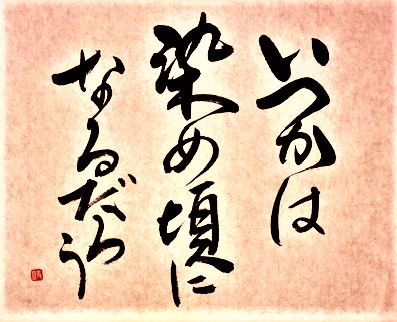 いつかは
染め頃に
なるだろう